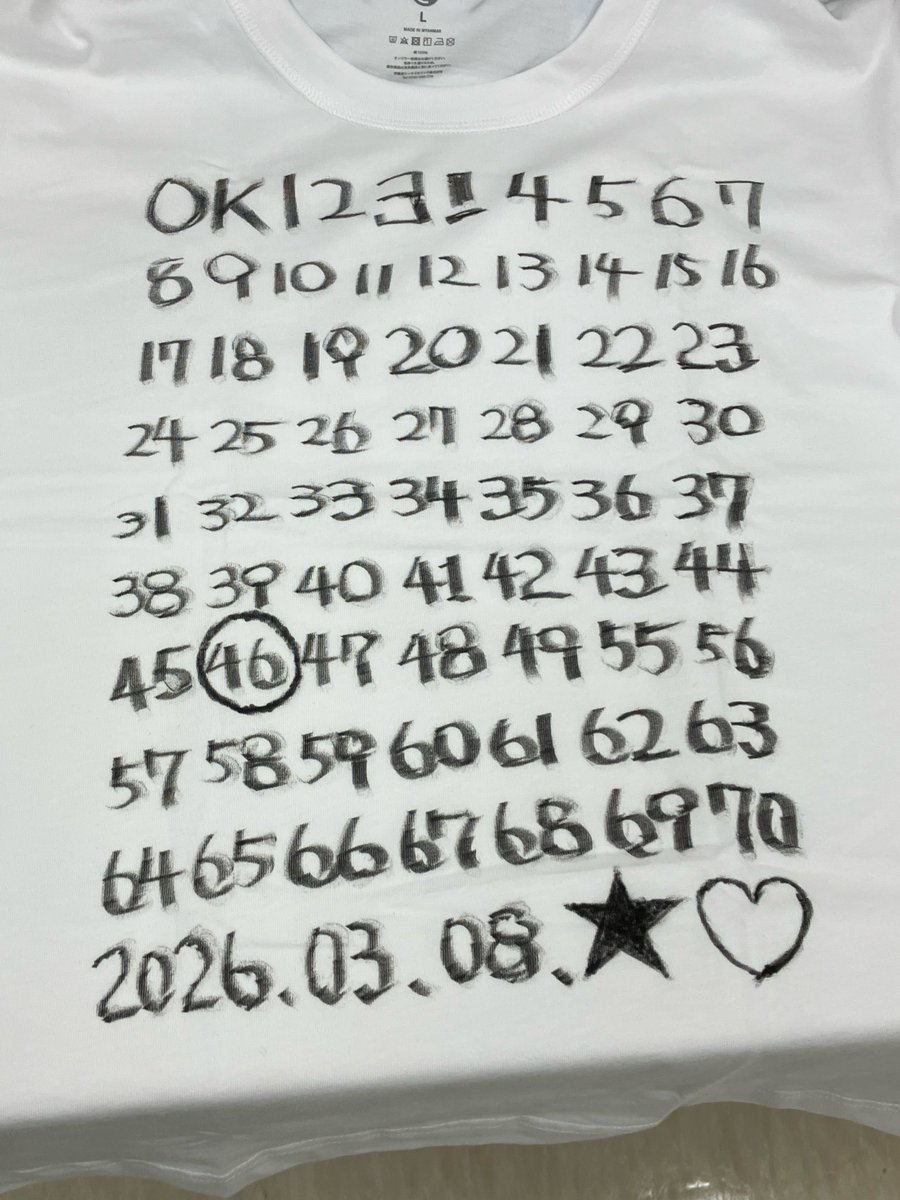 L
MADE IN MYANMAR
OK 1 2 3! 4 5 6 7
8 9 10 11 12 13 14 15 16
17 18 19 20 21 22 23
24 25 26 27 28 29 30
31 32 33 34 35 36 37
38 39 40 41 42 43 44
45 46 47 48 49 55 56
57 58 59 60 61 62 63
64 65 66 67 68 69 70
2026.03.08.★♡